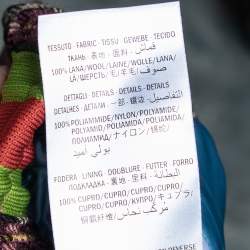 TESSUTO - FABRIC - TISSU - GEWEBE - TECIDO
ТКАНЬ - 表地 - 面料 - قماش
100% LANA/WOOL/LAINE/WOLLE/LANA/
LÃ/ШЕРСТЬ/毛/羊毛/صوف
DETTAGLI - DETAILS - DETAILS - DETAILS
DETALHES - ДЕТАЛИ - 一部 - 镶边 - تفاصيل
100% POLIAMMIDE/NYLON/POLYAMIDE/
POLYAMID/POLIAMIDA/POLIAMIDA/
ПОЛИАМИД/ナイロン/锦纶/
بولي أميد
FODERA - LINING - DOUBLURE - FUTTER - FORRO
ПОДКЛАДКА - 裏地 - 里料 - البطانة
100% CUPRO/CUPRO/CUPRO/CUPRO/
CUPRO/CUPRO/КУПРО/キュプラ/
铜氨纤维/مركب نحاس
REVERSE